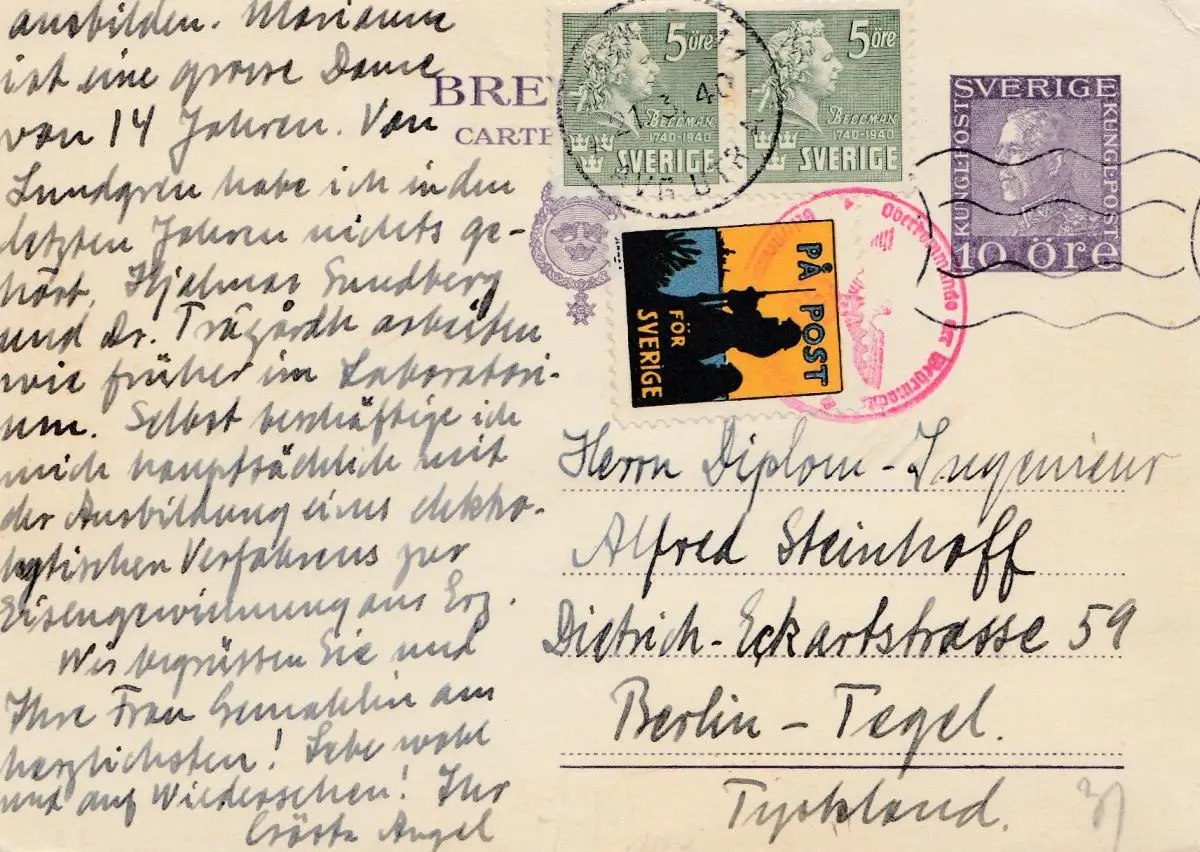 ausbilden. Mariann
ist eine grosse Dame
von 14 Jahren. Von
Lundgren habe ich in den
letzten Jahren nichts ge-
hört. Hjalmar Sundberg
und Dr. Trägårdh arbeiten
wie früher im Laboratori-
um. Selbst beschäftige ich
mich hauptsächlich mit
der Ausbildung eines elektro-
lytischen Verfahrens zur
Eisengewinnung aus Erz.
Wir begrüssen Sie und
Ihre Frau Gemahlin am
herzlichsten! Lebe wohl
und auf Wiedersehen! Ihr
Gösta Angel
BRE
CARTE
5 öre
BELLMAN
1740-1940
SVERIGE
5 öre
BELLMAN
1740-1940
SVERIGE
40
SVERIGE
KUNGL·POST
KUNGL·POST
10 öre
PÅ POST
FÖR
SVERIGE
Oberkommando der Wehrmacht
Herrn Diplom-Ingenieur
Alfred Steinhoff
Dietrich-Eckartstrasse 59
Berlin - Tegel.
Tyskland.